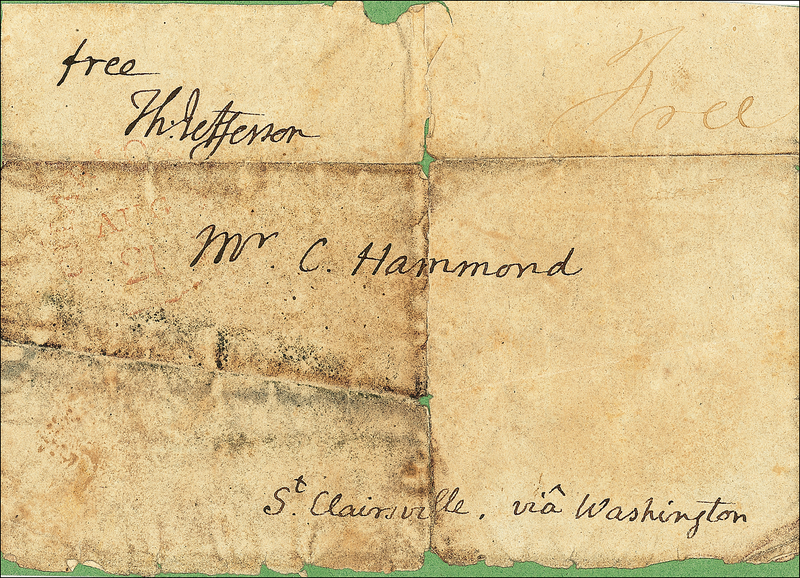 free
Free
Th: Jefferson
AUG
21
Mr. C. Hammond
St. Clairsville, viâ Washington